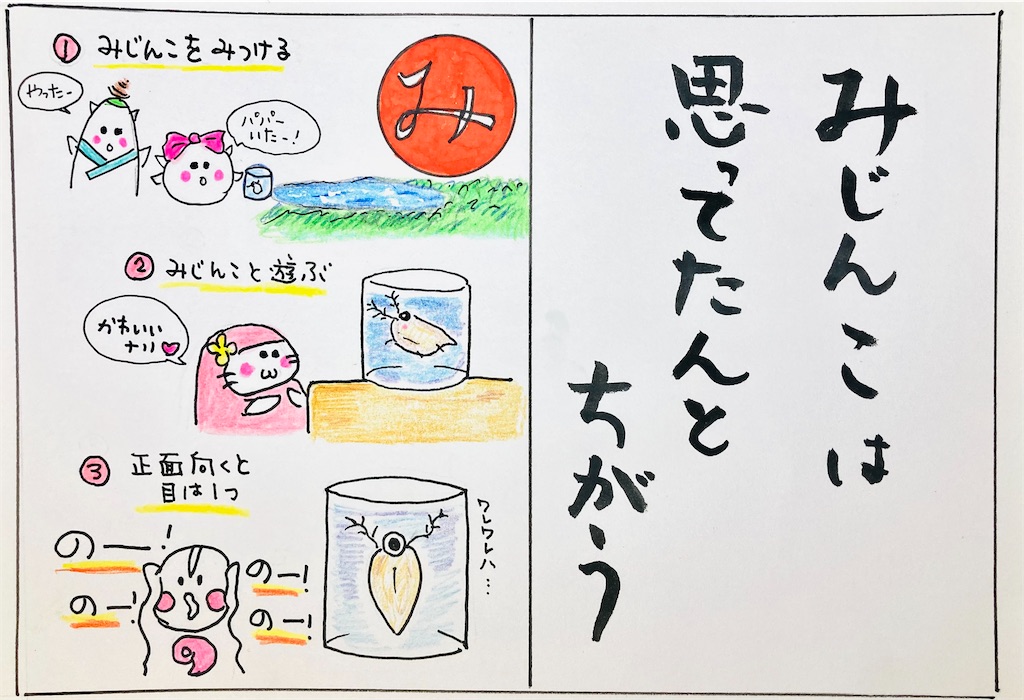 みじんこは
思ってたんと
ちがーう
み
① みじんこをみつける
やったー
パパー
いたー!
② みじんこと遊ぶ
かわいい
ナリ
③ 正面向くと
目は1つ
のー!
のー!
のー!
のー!
ワレワレハ…